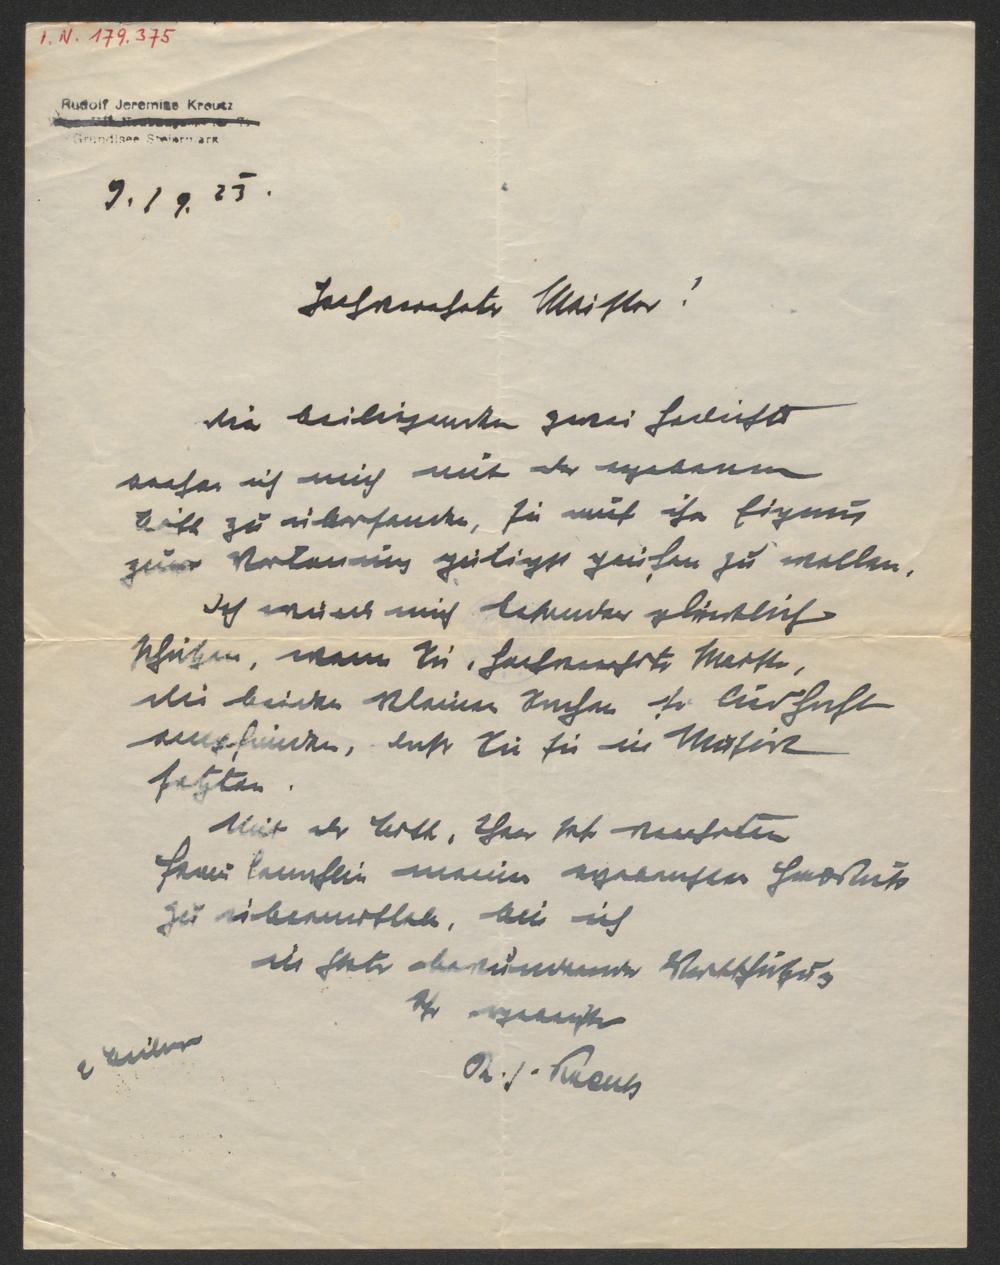 I. N. 179.375
Rudolf Jeremias Kreutz
Grundlsee Steiermark
9./9. 25.
Hochverehrter Meister!
die beiliegenden zwei Gedichte
ich mich mit der ergebenen
Bitte zu übersenden, sie auf ihre Eignung
zur Vertonung gütigst prüfen zu wollen.
Ich würde mich besonders glücklich
schätzen, wenn Sie, hochverehrter Meister,
die beiden kleinen Sachen so liedhaft
empfinden, daß Sie sie in Musik
setzten.
Mit der Bitte, Ihrer sehr verehrten
Frau Gemahlin meinen ergebensten Handkuß
zu übermitteln, bin ich
in steter bewundernder Wertschätzung
Ihr ergebenster
R. J. Kreutz
2 Beilagen